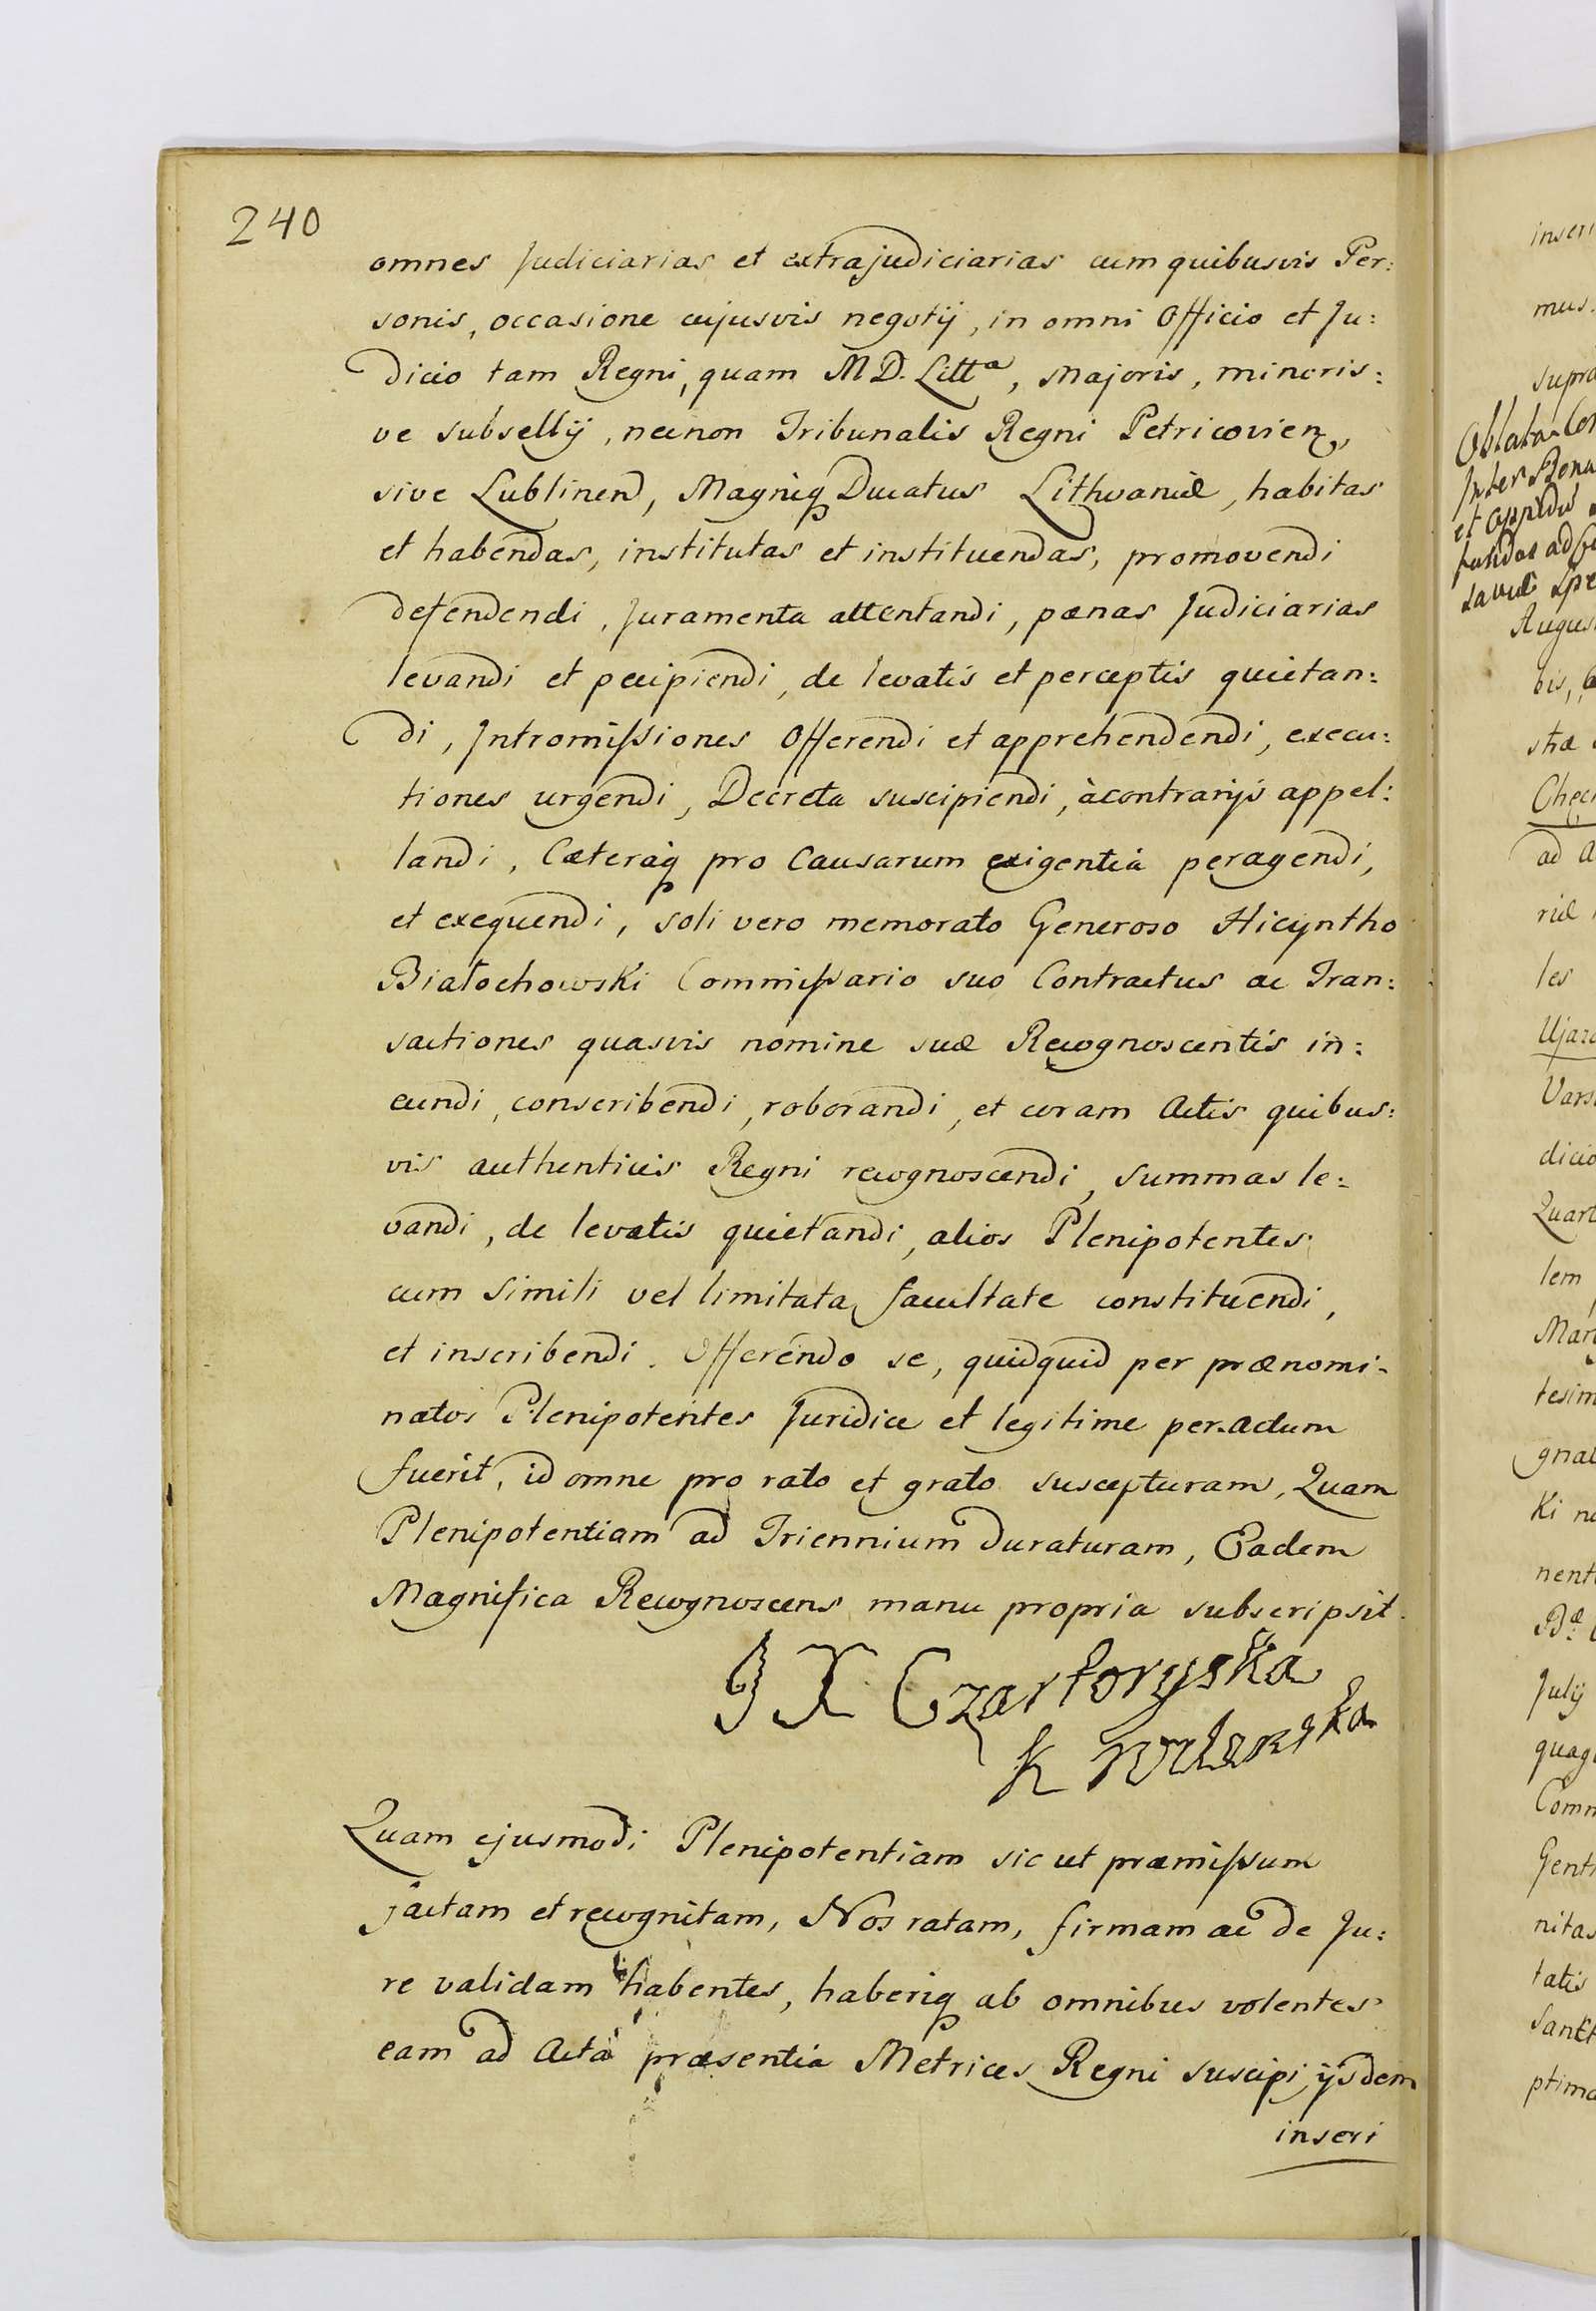 240
omnes Judiciarias et extrajudiciarias cum quibusvis Per:
sonis, occasione cujusvis negotij, in omni Officio et Ju:
dicio tam Regni, quam M D. Litt^a, Majoris, minoris:
ve subsellij, necnon Tribunalis Regni Petricovien,
sive Lublinen, Magniq Ducatus Lithvaniæ, habitas
et habendas, institutas et instituendas, promovendi
defendendi, Juramenta attentandi, pænas Judiciarias
levandi et pecipiendi, de levatis et perceptis quietan:
di, Intromissiones Offerendi et apprehendendi, execu:
tiones urgendi, Decreta suscipiendi, à contrarijs appel:
landi, Cæteraq pro Causarum exigentia peragendi,
et exequendi, soli vero memorato Generoso Hicyntho
Białochowski Commissario suo Contractus ac Tran:
sactiones quasvis nomine suæ Recognoscentis in:
eundi, conscribendi, roborandi, et coram Actis quibus:
vis authenticis Regni recognoscendi, Summas le:
vandi, de levatis quietandi, alios Plenipotentes
cum Simili vel limitata facultate constituendi,
et inscribendi. Offerendo se, quidquid per prænomi-
natos Plenipotentes Juridice et legitime per actum
fuerit, id omne pro rato et grato suscepturam, Quam
Plenipotentiam ad Triennium duraturam, Eadem
Magnifica Recognoscens manu propria subscripsit.
J X Czartoryska
K
Quam ejusmodi Plenipotentiam sic ut præmissum
factam et recognitam, Nos ratam, firmam ac de Ju:
re validam habentes, haberiq ab omnibus volentes
eam ad Acta præsentia Metrices Regni suscipi, ijsdem
inseri
mus.
supra
Oblata Con
Inter Bona
et
ad
Augus
bis,
stræ
Chęc
ad A
riæ
les
Ujaz
Vars
dicio
Quart
lem
Mar
tesim
gnat
Ki n
nent
Julij
quag
Comm
Gent
nitas
tatis
Sanct
ptima